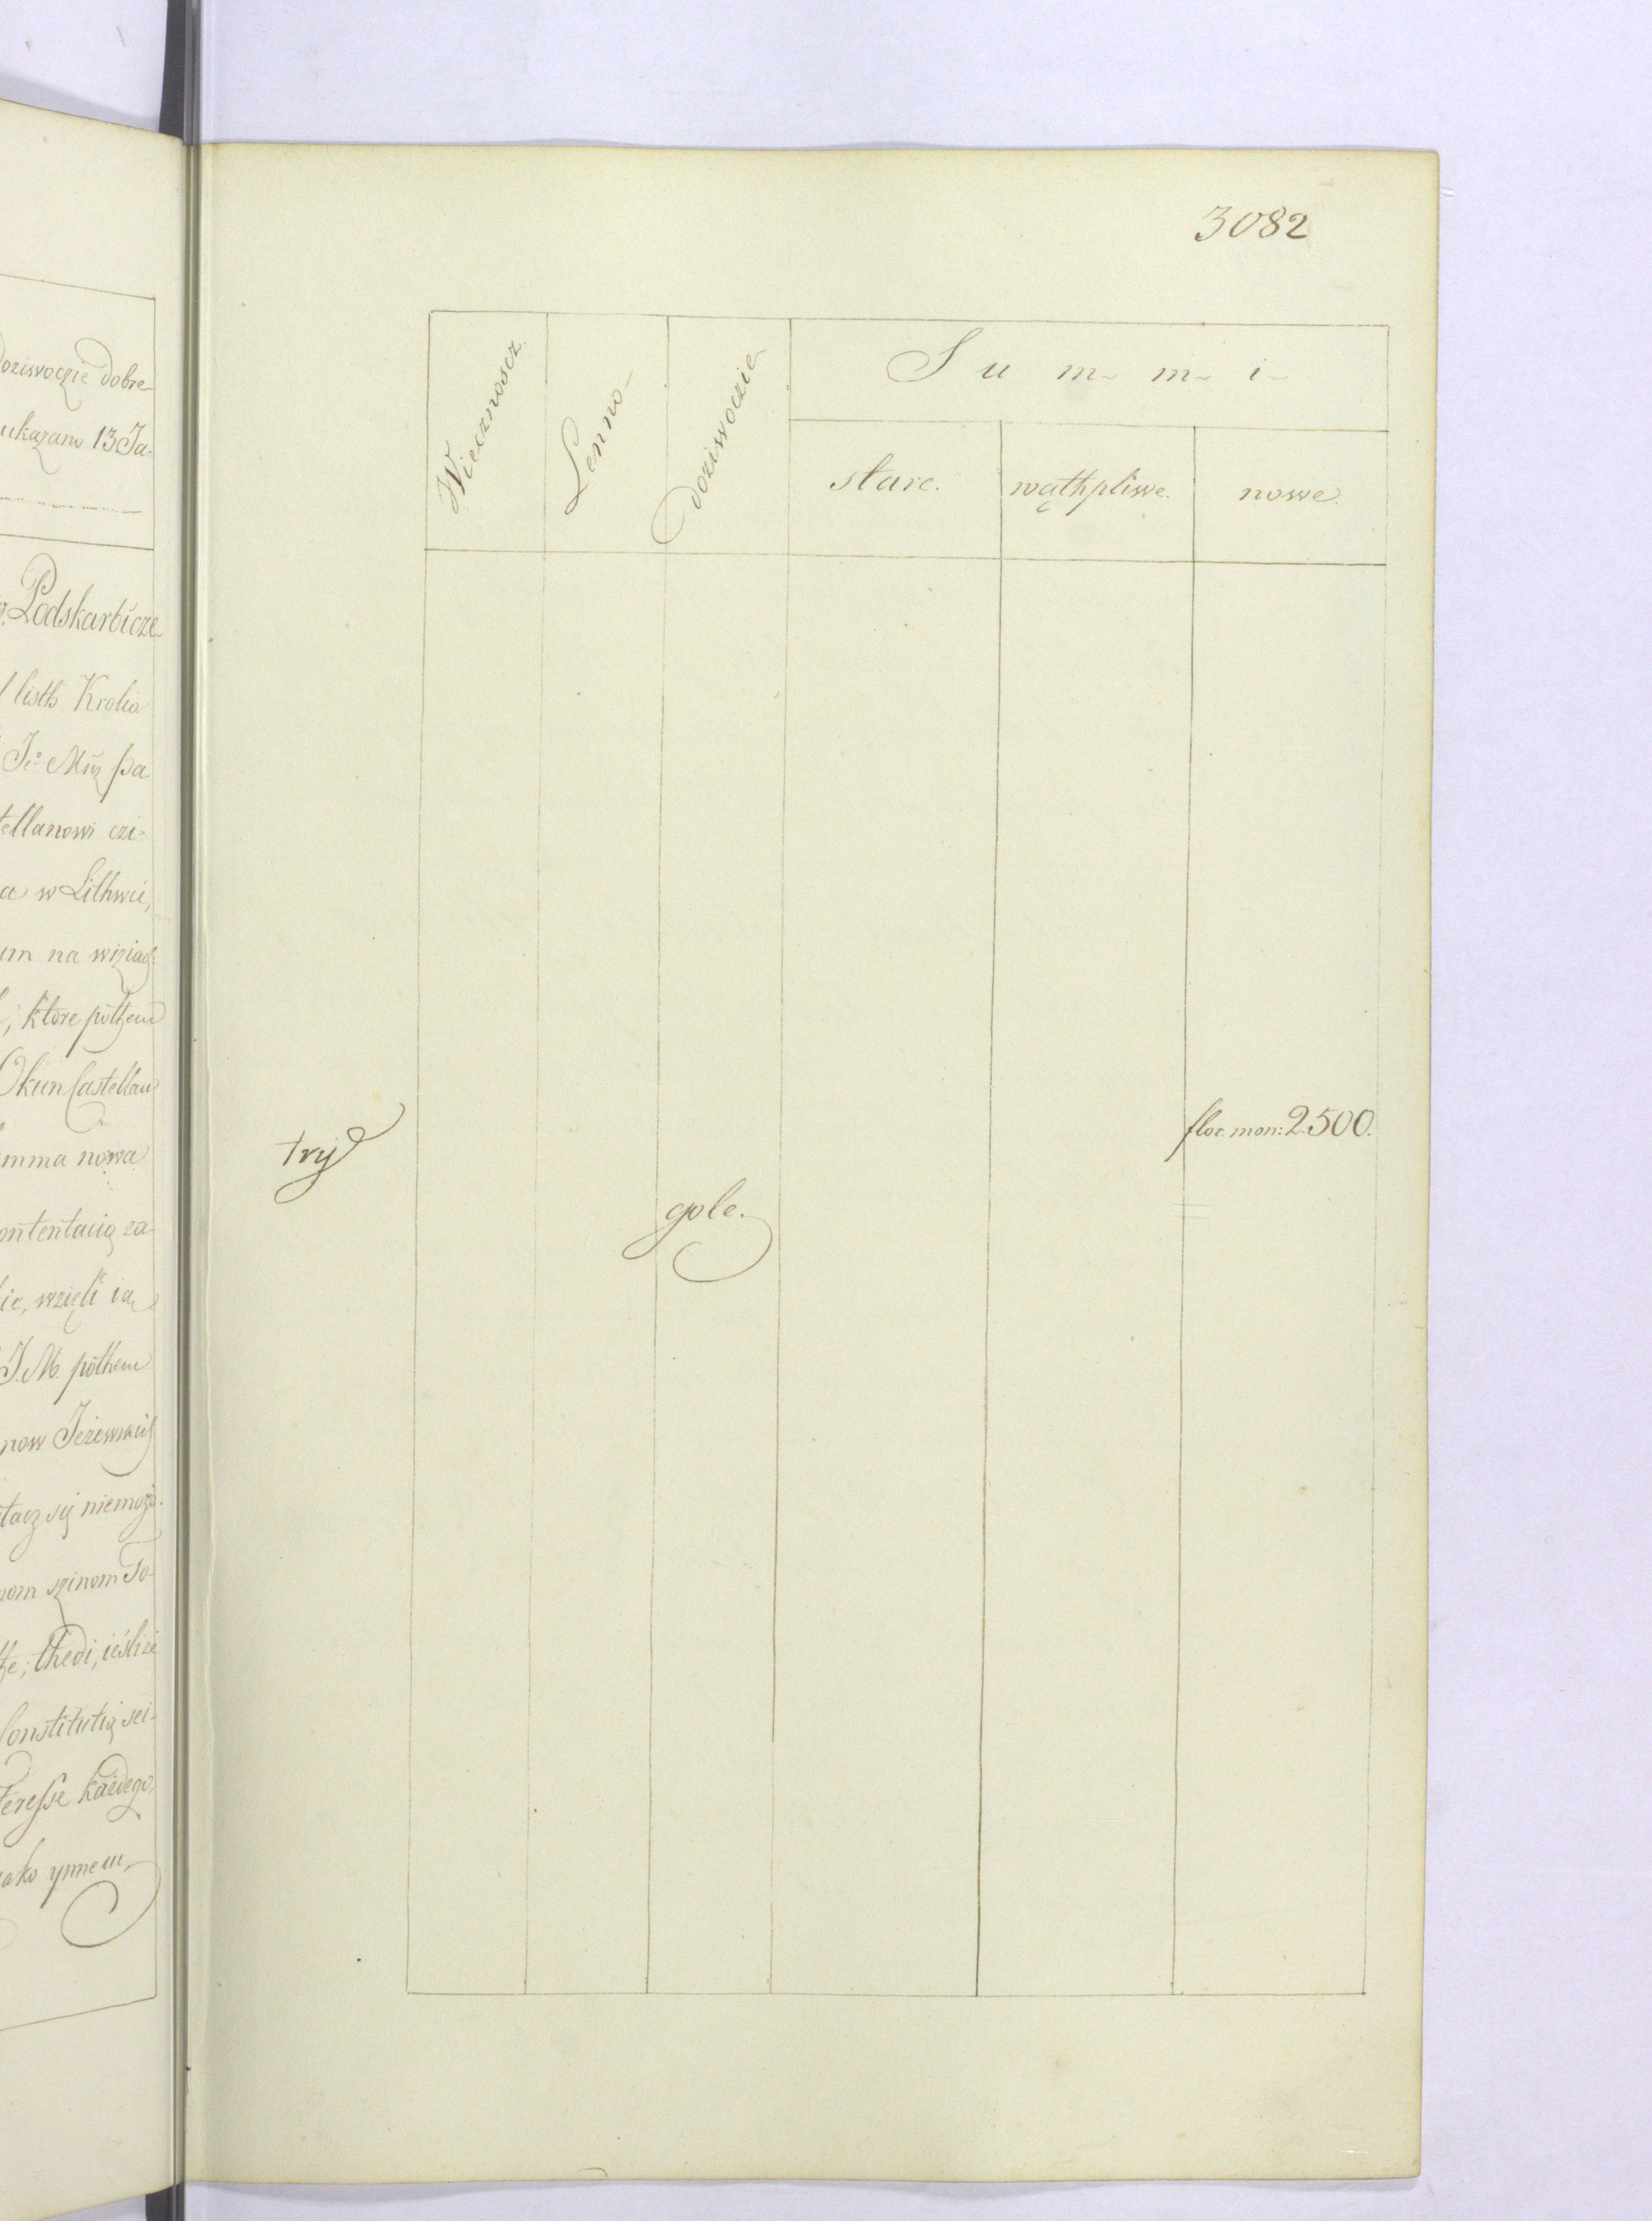 oziwoczie dobre-
ukazano 13 Ja-
Podskarbicze-
listh Krolia
Je° Mcz pa
tellanowi czi-
a w Lithwie,
um na wiziad
ktore pothem
Okun Castellan
mma nowa
ontentacią za-
ie, wzięli ią
J. M. pothem
now Jeżewskich
tacz się niemoże
nom szinom To-
te; thedi, ieslize
Constitutią sei-
teresse każdego,
iako ynnem,
3082
Wiecznoscz.
Lenno-
Doziwoczie
S u m m i
stare.
wąthpliwe.
nowe.
flor. mon: 2.500.
try
gole.